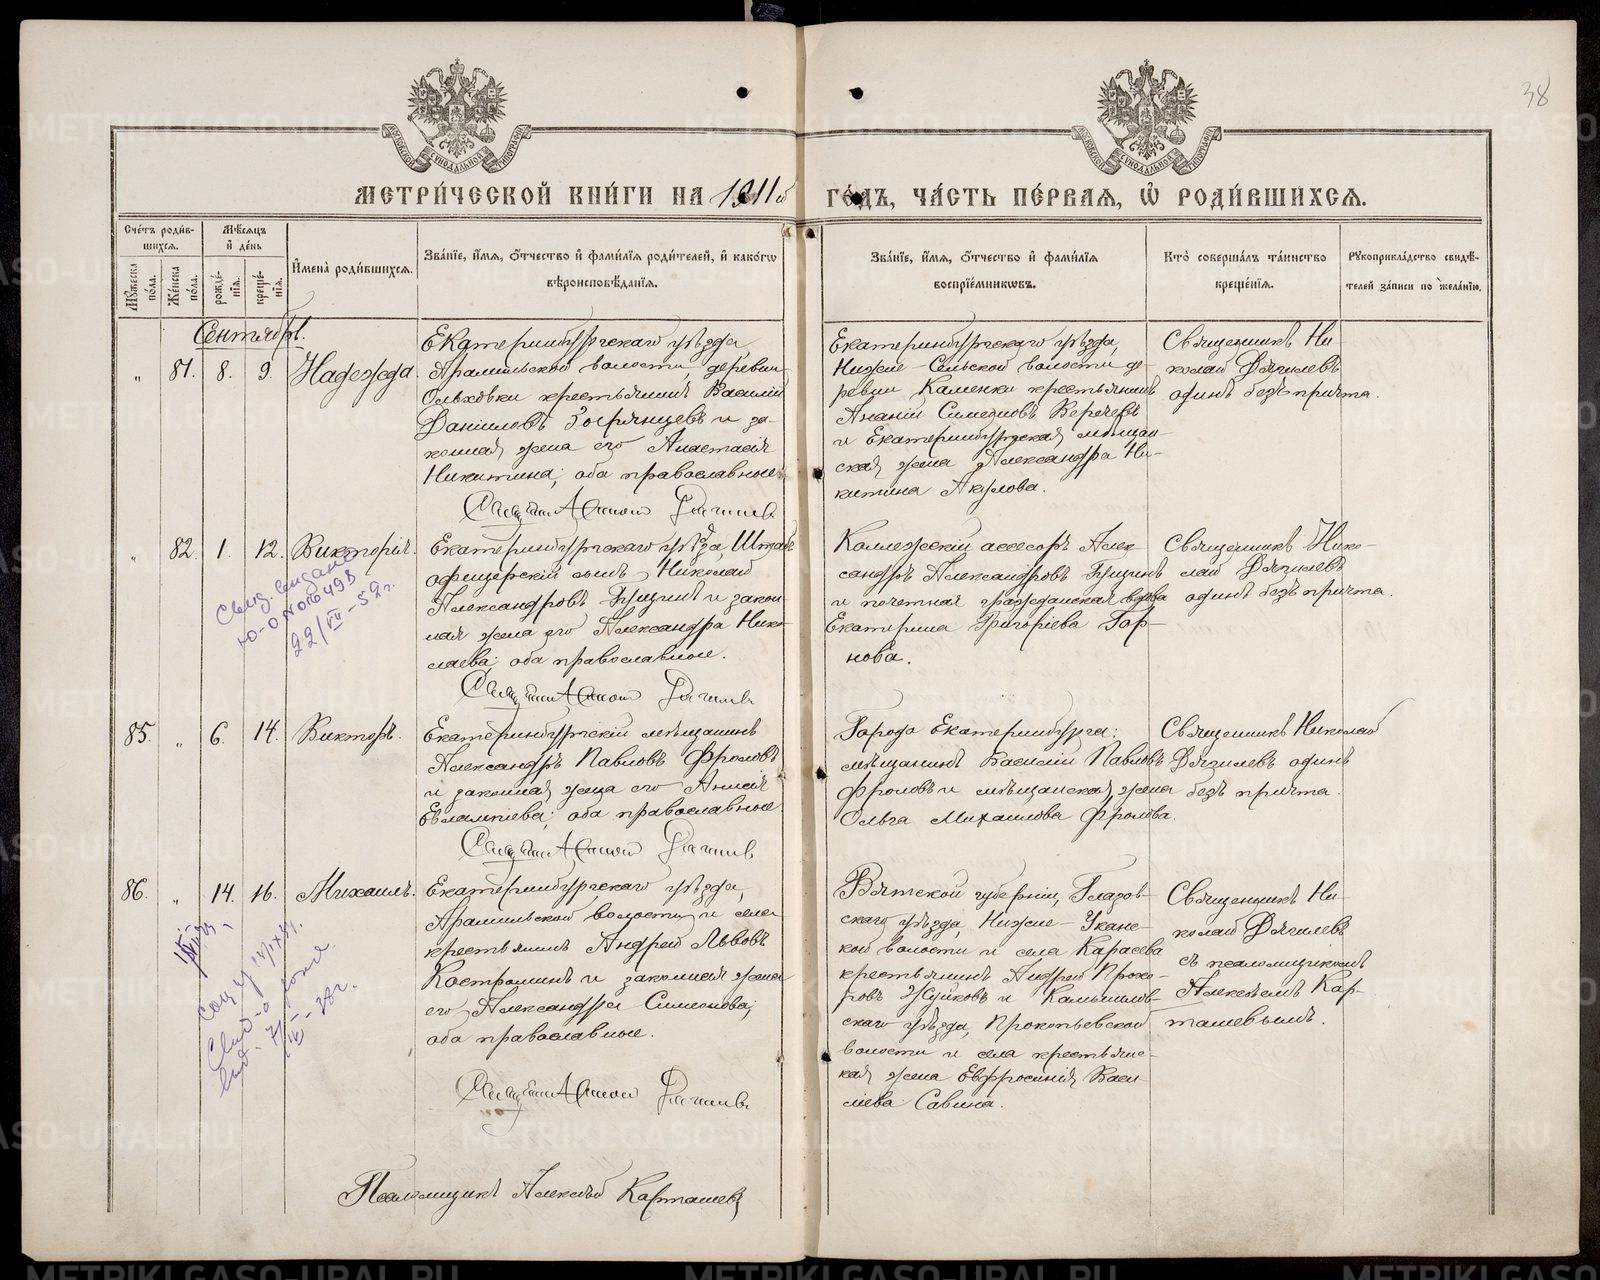 38
МЕТРИ́ЧЕСКОЙ КНИ́ГИ НА 1911й ГО́ДЪ, ЧА́СТЬ ПЕ́РВАЯ, Ѽ РОДИ́ВШИХСЯ.
Сче́тъ роди́в-
шихся.
Му́жеска
по́ла.
Же́нска
по́ла.
Мѣ́сяцъ
и҆ де́нь
рожде́-
нія.
креще́-
нія.
И҆мена̀ роди́вшихся.
Зва́ніе, и҆́мя, о҆́тчество и҆ фами́лія роди́телей, и҆ како́гѡ
вѣроисповѣ́данія.
Зва́ніе, и҆́мя, о҆́тчество и҆ фами́лія
воспріе́мниковъ.
Кто̀ соверша́лъ та́инство
креще́нія.
Рꙋкоприкла́дство свидѣ́-
телей за́писи по жела́нію.
Сентябрь.
„ 81. 8. 9. Надежда.
Екатеринбургскаго уѣзда,
Арамильской волости, деревни
Ольховки крестьянинъ Василій
Даниловъ и за-
конная жена его Анастасія
Никитина; оба православные
Екатеринбургскаго уѣзда,
Нижне-Сельской волости де-
ревни Каменки крестьянинъ
Ананій Симеоновъ
и Екатеринбургская мѣщан-
ская жена Александра Ни-
китина Акулова.
Священникъ Ни-
колай Дягилевъ
одинъ безъ причта.
„ 82. 1. 12. Викторія.
Екатеринбургскаго уѣзда, Штабъ
офицерскій сынъ Николай
Александровъ и закон-
ная жена его Александра Нико-
лаева; оба православные.
Коллежскій ассесоръ Алек-
сандръ Александровъ
и почетная гражданская вдова
Екатерина Григоріева Гор-
нова.
Священникъ Нико-
лай Дягилевъ
одинъ безъ причта.
22/VII-52г.
85. „ 6. 14. Викторъ.
Екатеринбургскій мѣщанинъ
Александръ Павловъ Фроловъ
и законная жена его Анисія
Евлампіева; оба православные
Города Екатеринбурга:
мѣщанинъ Василій Павловъ
Фроловъ и мѣщанская жена
Ольга Михаилова Фролова.
Священникъ Николай
Дягилевъ одинъ
безъ причта.
86. „ 14. 16. Михаилъ.
Екатеринбургскаго уѣзда,
Арамильской волости и села
крестьянинъ Андрей Львовъ
Костроминъ и законная жена
его Александра Симеонова;
оба православные.
Вятской губерніи, Глазов-
скаго уѣзда, Нижне-Укан-
кой волости и села Карасева
крестьянинъ Андрей Проко-
ровъ Жуйковъ и Камышлов-
скаго уѣзда, Прокопьевской
волости и села крестьянс-
кая жена Евфросинія Васи-
лiева Савина.
Священникъ Ни-
колай Дягилевъ
съ псаломщикомъ
Алексѣемъ Кар-
ташевымъ.
Псаломщикъ Алексѣй Карташевъ